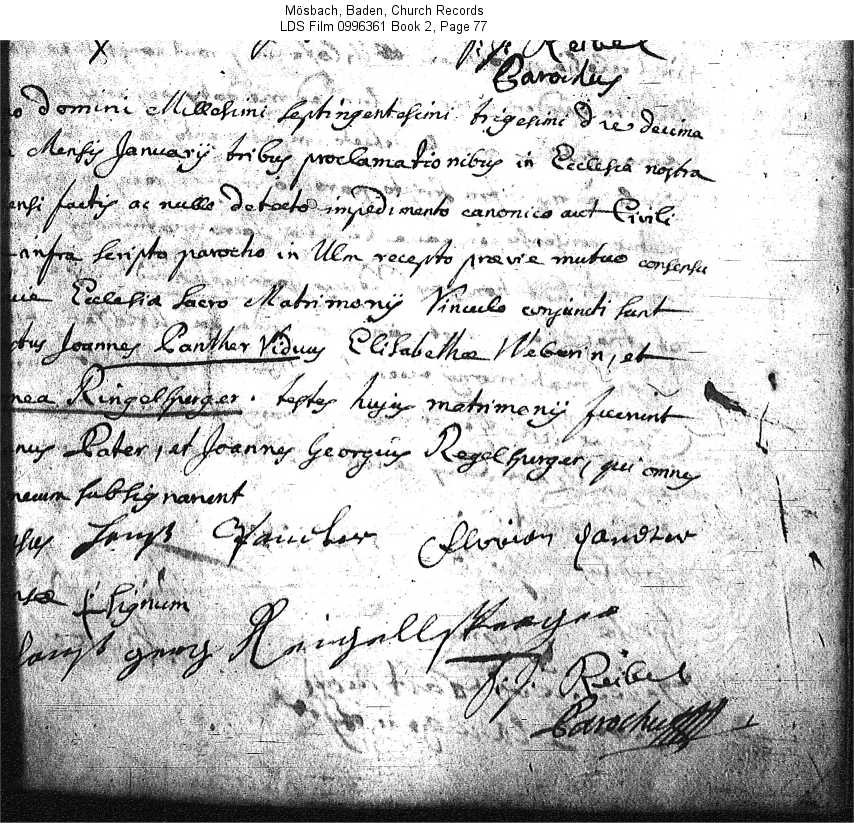 Mösbach, Baden, Church Records
LDS Film 0996361 Book 2, Page 77
Reibel
Parochus
domini Millesimi septingentesimi trigesimi die decima
Mensis Januarij tribus proclamationibus in Ecclesia nostra
ensi factis ac nullo detecto impedimento canonico aut Civili
infra scripto parocho in Ulm recepto prævie mutuo consensu
Ecclesiæ sacro Matrimonij Vinculo conjuncti sunt
Joannes Panther Viduus Elisabethæ Weberin, et
Ringelspurger. testes hujus matrimonij fuerunt
Pater, et Joannes Georgius Regelspurger, qui omnes
mecum subsignarunt
Florian
signum
georg
J. J. Reibel
Parochus